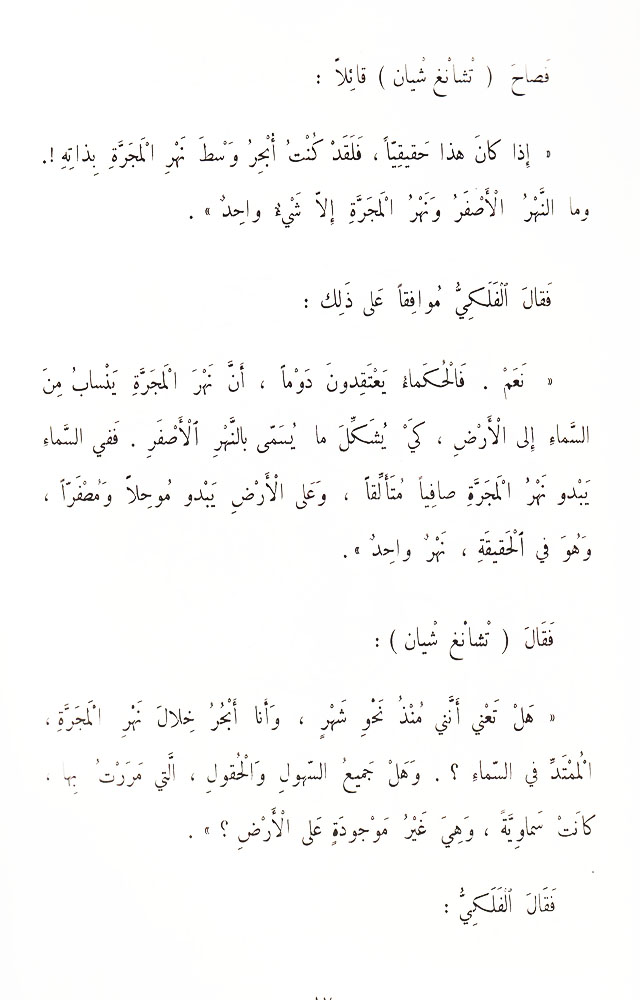 فَصاحَ ( تْشانْغ شْيان ) قائِلاً :
« إِذا كانَ هذا حَقيقِيّاً ، فَلَقَدْ كُنْتُ أُبْحِرُ وَسْطَ نَهْرِ الْمَجَرَّةِ بِذاتِهِ !.
وما النَّهْرُ الْأَصْفَرُ وَنَهْرُ الْمَجَرَّةِ إِلاّ شَيْءٌ واحِدٌ » .
فَقالَ الْفَلَكِيُّ مُوافِقاً عَلى ذَلِكَ :
« نَعَمْ . فَالْحُكَماءُ يَعْتَقِدونَ دَوْماً ، أَنَّ نَهْرَ الْمَجَرَّةِ يَنْسابُ مِنَ
السَّماءِ إِلى الْأَرْضِ ، كَيْ يُشَكِّلَ ما يُسَمّى بالنَّهْرِ الْأَصْفَرِ . فَفي السَّماءِ
يَبْدو نَهْرُ الْمَجَرَّةِ صافِياً مُتَأَلِّقاً ، وَعَلى الْأَرْضِ يَبْدو مُوحِلاً وَمُصْفَرّاً ،
وَهُوَ في الْحَقيقَةِ ، نَهْرٌ واحِدٌ » .
فَقَالَ ( تْشانْغ شْيان ) :
« هَلْ تَعْني أَنَّني مُنْذُ نَحْوِ شَهْرٍ ، وَأَنا أُبْحُرُ خِلالَ نَهْرِ الْمَجَرَّةِ ،
الْمُمْتَدِّ في السَّماءِ ؟ . وَهَلْ جَميعُ السّهولِ وَالْحُقولِ ، الَّتي مَرَرْتُ بِها ،
كانَتْ سَماوِيَّةً ، وَهِيَ غَيْرُ مَوْجودَةٍ عَلى الْأَرْضِ ؟ » .
فَقَالَ الْفَلَكِيُّ :